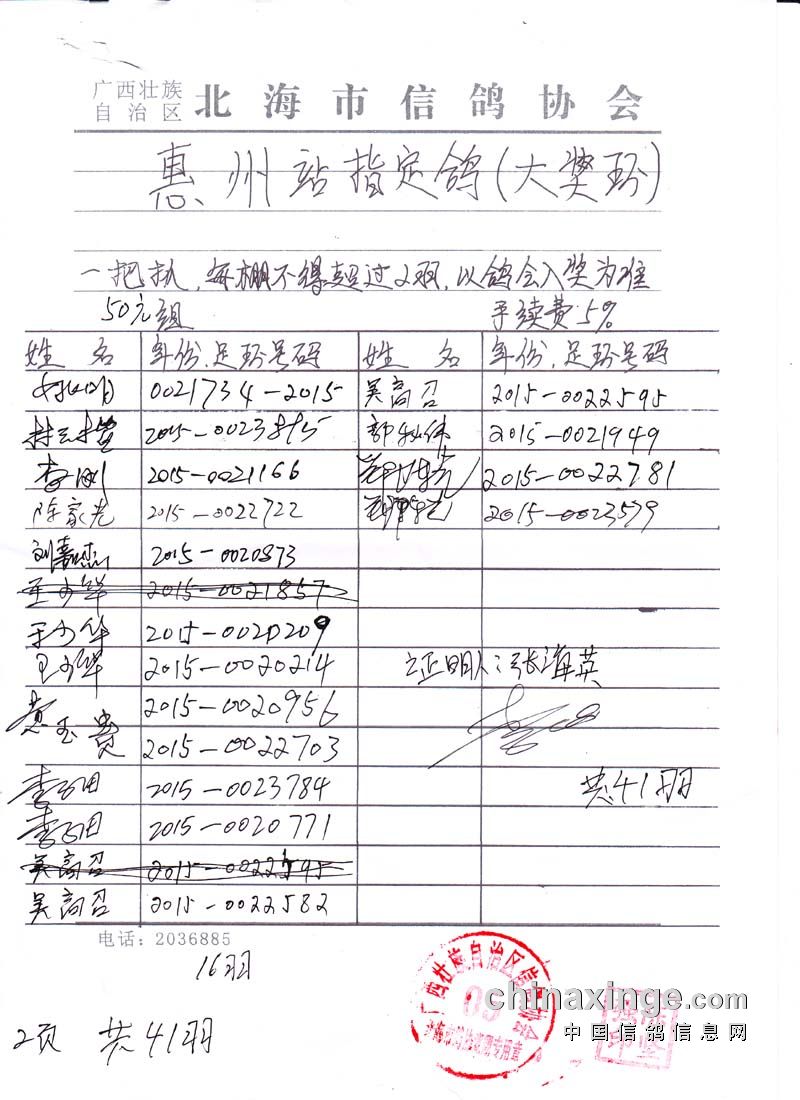 广西壮族
自治区 北海市信鸽协会
惠州站指定鸽(大奖环)
一把抓,每棚不得超过2羽,以鸽会入奖为准
50元组 手续费5%
姓 名 年份.足环号码 姓 名 年份.足环号码
0021734-2015 吴高召 2015-0022595
2015-0023895 2015-0021949
李刚 2015-0021166 2015-0022781
陈家光 2015-0022722 2015-0023579
刘嘉杰 2015-0020873
王少华 2015-0021857
王少华 2015-0020209
王少华 2015-0020214 证明人:张海英
黄玉贵 2015-0020956
2015-0022703
2015-0023784 共41羽
2015-0020771
吴高召 2015-0022595
吴高召 2015-0022582
电话:2036885
16羽
2页 共41羽
广西壮族自治区信鸽协会
09
chinaxinge.com
中国信鸽信息网